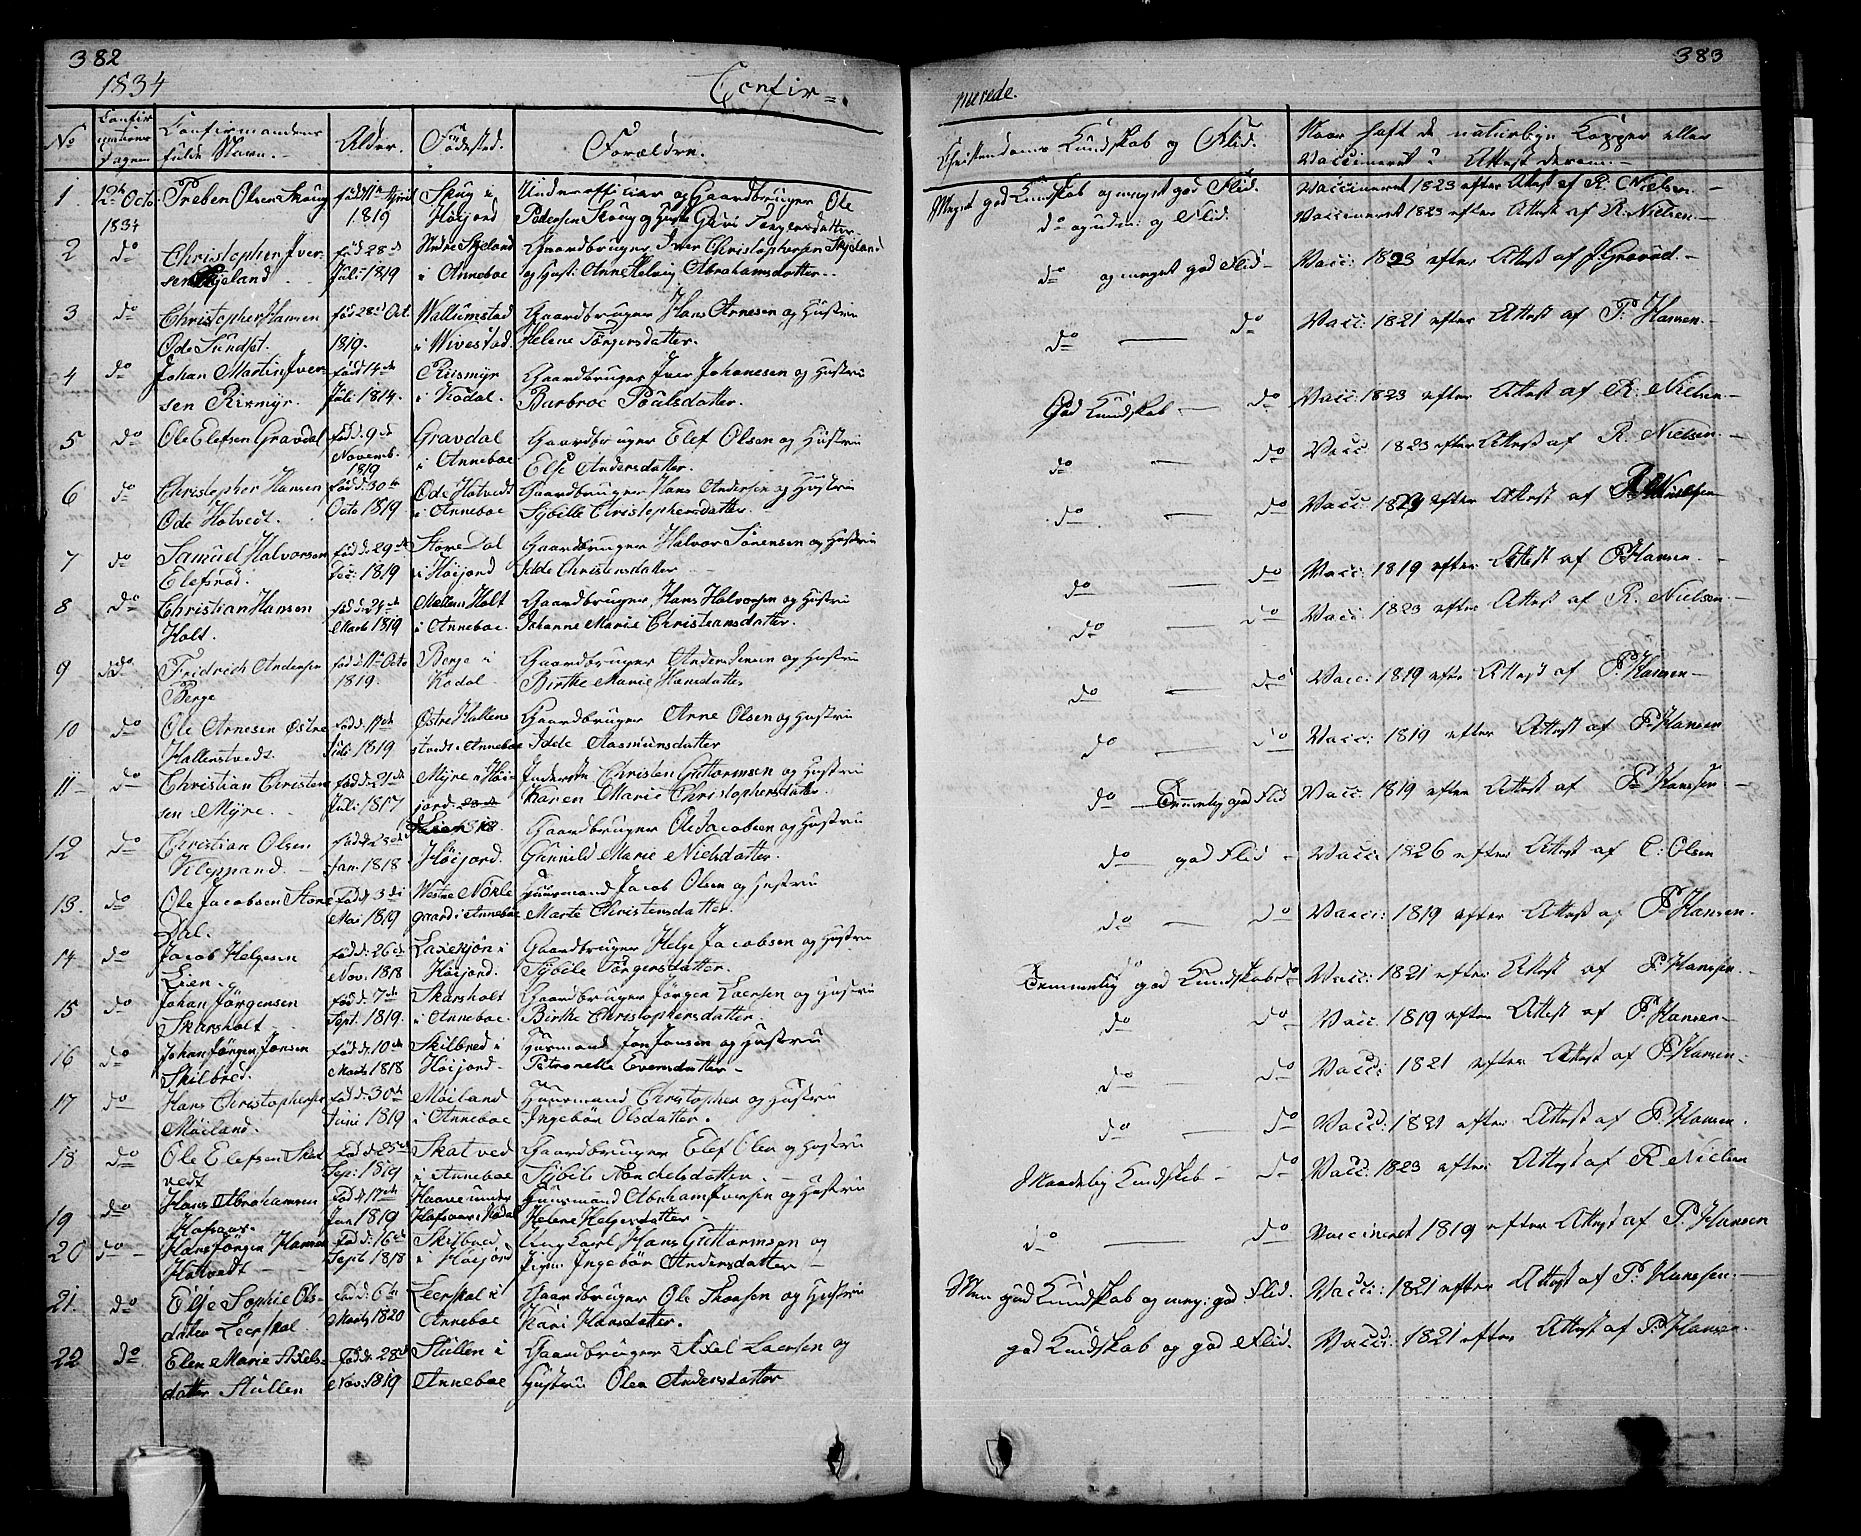 382
1834
Confir-
No
Confir
mations
Dagen
Confirmandens
fulde Navn.
Alder.
Fødested.
Forældre.
1 12te Octo. Preben Olsen Skoug fød 11te April Skug i Underofficier og Gaardbruger Ole
1834 1819 Høijord Pedersen Skoug og Hustr.
2 do Christopher Iver- fød 28de Gaardbruger Iver Christophersen Skjeland
sen Skjeland Juli 1819 i Anneboe og Hust: Anne Helvig Abrahamsdatter
3 do Christopher Hansen fød 28de Oct. Wallumstad Gaardbruger Hans Arnesen og Hustru
Øde Sundset. 1819. i Wivestad. Helene Törgersdatter.
4 do Johan Martin Iver fød 14de Riismyr Gaardbruger Iver Johanesen og Hustru
sen Rismyr. Juli 1814. i Kodal. Barbroe Poulsdatter.
5 do Ole Elefsen Gravdal fød d: 9de Gravdal Gaardbruger Elef Olsen og Hustru
Novemb. 1819 i Anneboe Else Andersdatter.
6 do Christopher Hansen fød d: 30te Øde Hotvedt Gaardbruger Hans Andersen og Hustru
Øde Hotvedt. Octo 1819 i Anneboe Sybille Christophersdatter.
7 do Samuel Halvorsen fød d: 29de Store Dal Gaardbruger Halvor Sörensen og Hustru
Elefsrød. 1819 i Höijord Idde Christensdatter
8 do Christian Hansen fød d: 24de Mellem Holt Gaardbruger Hans Halvorsen og Hustru
Holt. Marts 1819 i Anneboe. Johanne Marie Christiansdatter.
9 do Fridrich Andersen fød d: 11te Octo Berge i Gaardbruger Anders og Hustru
Berge 1819. Kodal Birthe Marie Hansdatter
10 do Ole Arnesen Østre fød d: 11te Østre Hallens Gaardbruger Arne Olsen og Hustru
Hallenstvedt. Juli 1819 i Anneboe Idde Aasmunsdatter
11 do Christian Christen fød d: 21de Myre i Höi Inderste Christen Guttormsen og Hustru
sen Myre. Juli 1817 jord Karen Marie Christophersdatter.
12 do Christian Olsen fød d: 23de Gaardbruger Ole Jacobsen og Hustru
Kleppand. Jan: 1818 Höijord. Gunnild Marie Nielsdatter.
13. do Ole Jacobsen Store fød d: 3die Westre Nörle Huusmand Jacob Olsen og Hustru
Dal. Mai 1819 gaard i Anneboe Marte Christensdatter.
14 do Jacob Helgesen fød d: 26de i Gaardbruger Helge Jacobsen og Hustru
Lien. Nov: 1818 Höijord. Sybile Törgersdatter.
15 do Johan Jörgensen fød d: 7de Skarsholt Gaardbruger Jörgen Laersen og Hustru
Skarsholt Sept: 1819. i Anneboe. Birthe Christophersdatter.
16 do Johan Jörgen Jonsen fød d: 10de Skilbred i Huusmand Jon Jonsen og Hustru
Skilbred. Marts 1818 Höijord. Petronelle Evensdatter
17 do Hans Christophersen fød d: 30te Möiland Huusmand Christopher og Hustru
Möiland. Juni 1819 i Anneboe Ingebör Olsdatter.
18 do Ole Elefsen Skat fød d: 25de Skatved Gaardbruger Elef Olsen og Hustru
vedt Sep: 1819 i Anneboe
19 do Hans Abrahamsen fød d: 17de Haave under Huusmand Abraham Iversen og Hustru
Hafsaas. Jan 1819 Hafsaas i Kodal Helene Helgesdatter
20 do Hans Jörgen Hansen fød d: 16de Skilbred Ung Karl Hans Guttormsen og
Hotvedt Sept: 1818 i Höijord Pigen Ingebör Andersdatter
21. do Else Sophie Ols- fød d: 6te Leerskal i Gaardbruger Ole Thorsen og Hustru
datter Leerskal Marts 1820 Anneboe Kari Hansdatter.
22 do Elen Marie Axels fød d: 28de Stullen i Gaardbruger Axel Laersen og
datter Stullen Nov: 1819 Anneboe Hustru Olea Andersdatter
383
merede.
Christendoms Kundskab og Flid.
Naar haft de naturlige Kopper eller
Vaccineret? Attest derom.
Meget god Kundskab og meget god Flid. Vaccineret 1823 efter Attest af R. Nielsen
do og Flid. Vaccineret 1823 efter Attest af R. Nielsen
do og meget god Flid Vacc: 1823 efter Attest af J. Gravdal
do — do Vacc: 1821 efter Attest af P. Hansen
God Kundskab — do Vacc: 1823 efter Attest af R. Nielsen
do — do Vacc 1823 efter Attest af R. Nielsen
do — do Vacc: 1823 efter Attest af R. Nielsen
do — do Vacc: 1819 efter Attest af P. Hansen
do — do Vacc: 1823 efter Attest af R. Nielsen
do — do Vacc: 1819 efter Attest af P. Hansen
do — do Vacc: 1819 efter Attest af P. Hansen
do Temmelig god Flid Vacc: 1819 efter Attest af P. Hanssen
do god Flid Vacc: 1826 efter Attest af C: Olsen
do — do Vacc: 1819 efter Attest af P. Hansen.
Temmelig god Kundskab do Vacc: 1821 efter Attest af P. Hanssen.
do do Vacc: 1819 efter Attest af P. Hansen
do — do Vacc: 1821 efter Attest af P. Hansen
do — do Vacc: 1821 efter Attest af P. Hansen.
Maadelig Kundskab — do Vacc: 1823 efter Attest af R Nielsen
do — do Vaccineret 1819 efter Attest af P. Hansen
god Kundskab og meg: god Flid. Vacc: 1821 efter Attest af P. Hanssen.
god Kundskab og god Flid. Vacc: 1821 efter Attest af P. Hansen.